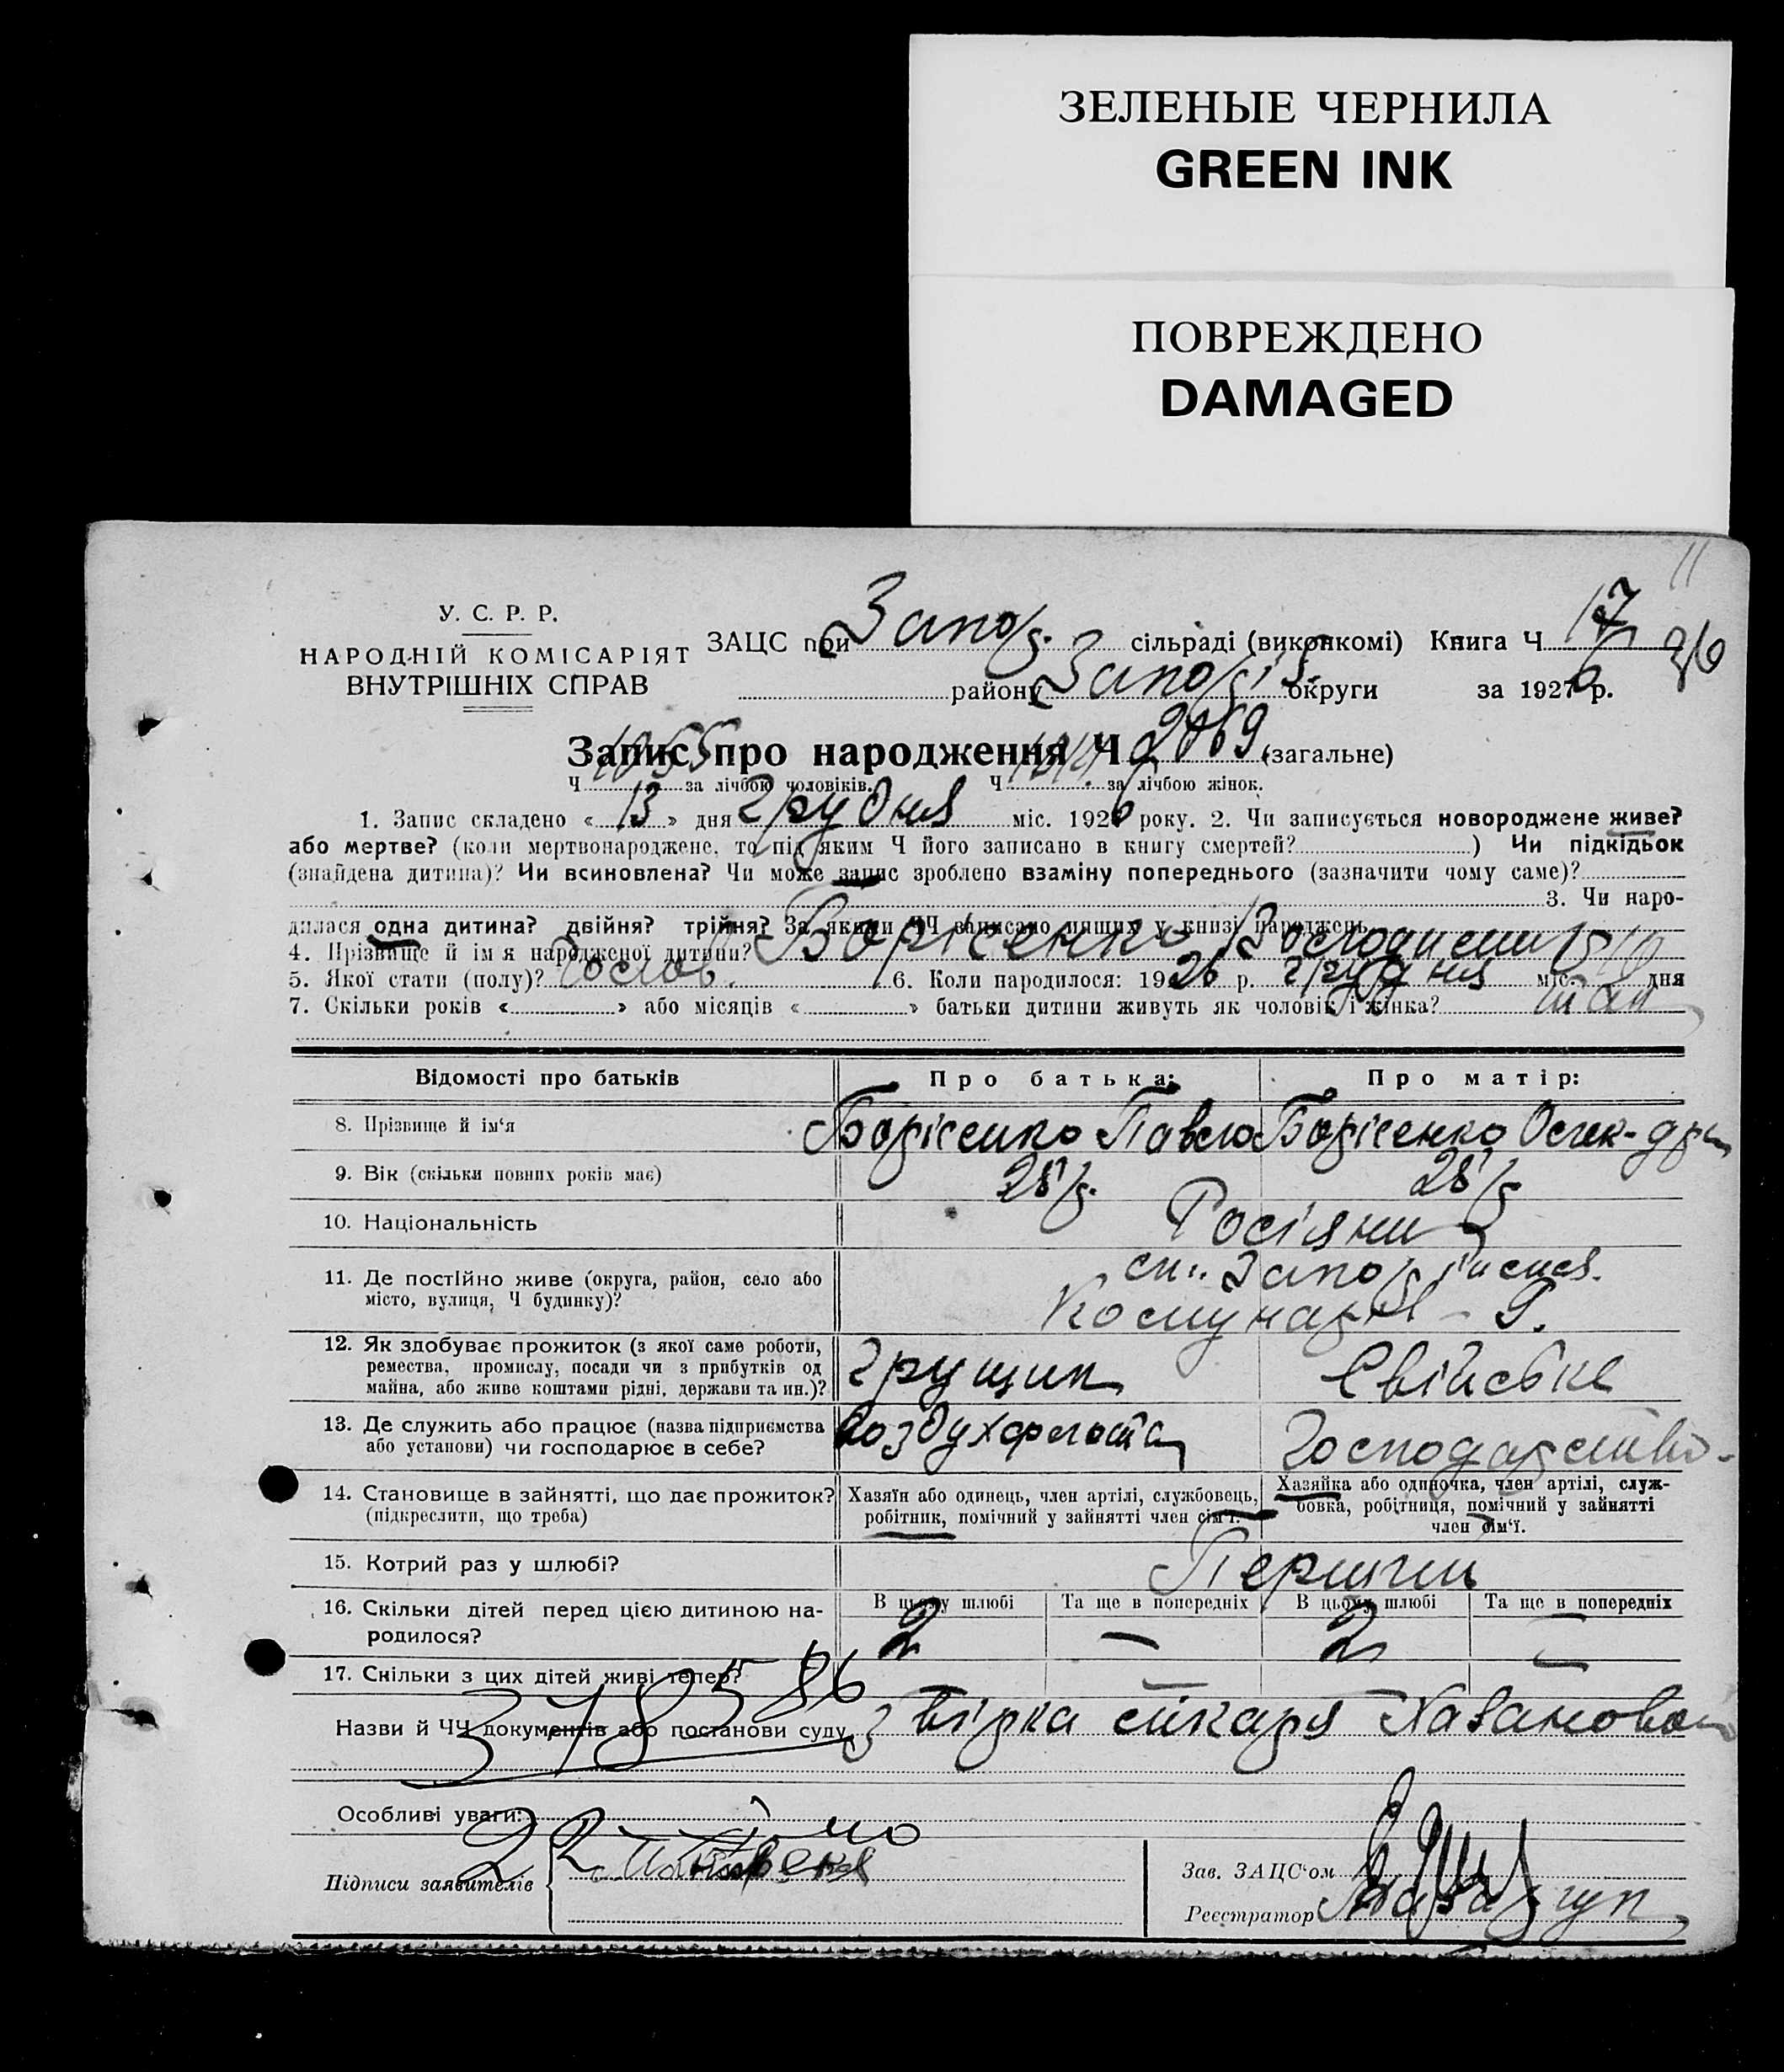 ЗЕЛЕНЫЕ ЧЕРНИЛА
GREEN INK
ПОВРЕЖДЕНО
DAMAGED
11
У. С. Р. Р.
НАРОДНІЙ КОМІСАРІЯТ
ВНУТРІШНІХ СПРАВ
ЗАЦС при Запор. сільраді (виконкомі) Книга Ч 17
району Запоріз. округи за 1926 р.
36
Запис про народження Ч 2069 (загальне)
Ч 1055 за лічбою чоловіків. Ч 1014 за лічбою жінок.
1. Запис складено « 13 » дня Грудня міс. 1926 року. 2. Чи записується новороджене живе?
або мертве? (коли мертвонароджене, то під яким Ч його записано в книгу смертей? ) Чи підкідьок
(знайдена дитина)? Чи всиновлена? Чи може запис зроблено взаміну попереднього (зазначити чому саме)?
3. Чи наро-
дилася одна дитина? двійня? трійня? За якими ЧЧ записано инших у книзі народжень
4. Прізвище й ім'я народженої дитини? Борісенко Володимир
5. Якої стати (полу)? Чолов. 6. Коли народилося: 1926 р. грудня міс. 10 дня
7. Скільки років « » або місяців « » батьки дитини живуть як чоловік і жінка? так
Відомості про батьків Про батька: Про матір:
8. Прізвище й ім'я Борісенко Павло Борісенко Олек-дра
9. Вік (скільки повних років має) 28 р. 28 р
10. Національність Росіяни
11. Де постійно живе (округа, район, село або
місто, вулиця, Ч будинку)?
12. Як здобуває прожиток (з якої саме роботи,
ремества, промислу, посади чи з прибутків од
майна, або живе коштами рідні, держави та ин.)? грущик Свійське
13. Де служить або працює (назва підприємства
або установи) чи господарює в себе? воздухфлота Господарство
14. Становище в зайнятті, що дає прожиток?
(підкреслити, що треба)
Хазяїн або одинець, член артілі, службовець,
робітник, помічний у зайнятті член сім'ї.
Хазяйка або одиночка, член артілі, служ-
бовка, робітниця, помічний у зайнятті
член сім'ї.
15. Котрий раз у шлюбі? Перший
16. Скільки дітей перед цією дитиною на-
родилося?
В цьому шлюбі Та ще в попередніх В цьому шлюбі Та ще в попередніх
2 — 2 —
17. Скільки з цих дітей живі тепер?
Назви й ЧЧ документів або постанови суду
378586
Особливі уваги:
22
Підписи заявителів
Зав. ЗАЦС'ом
Реєстратор